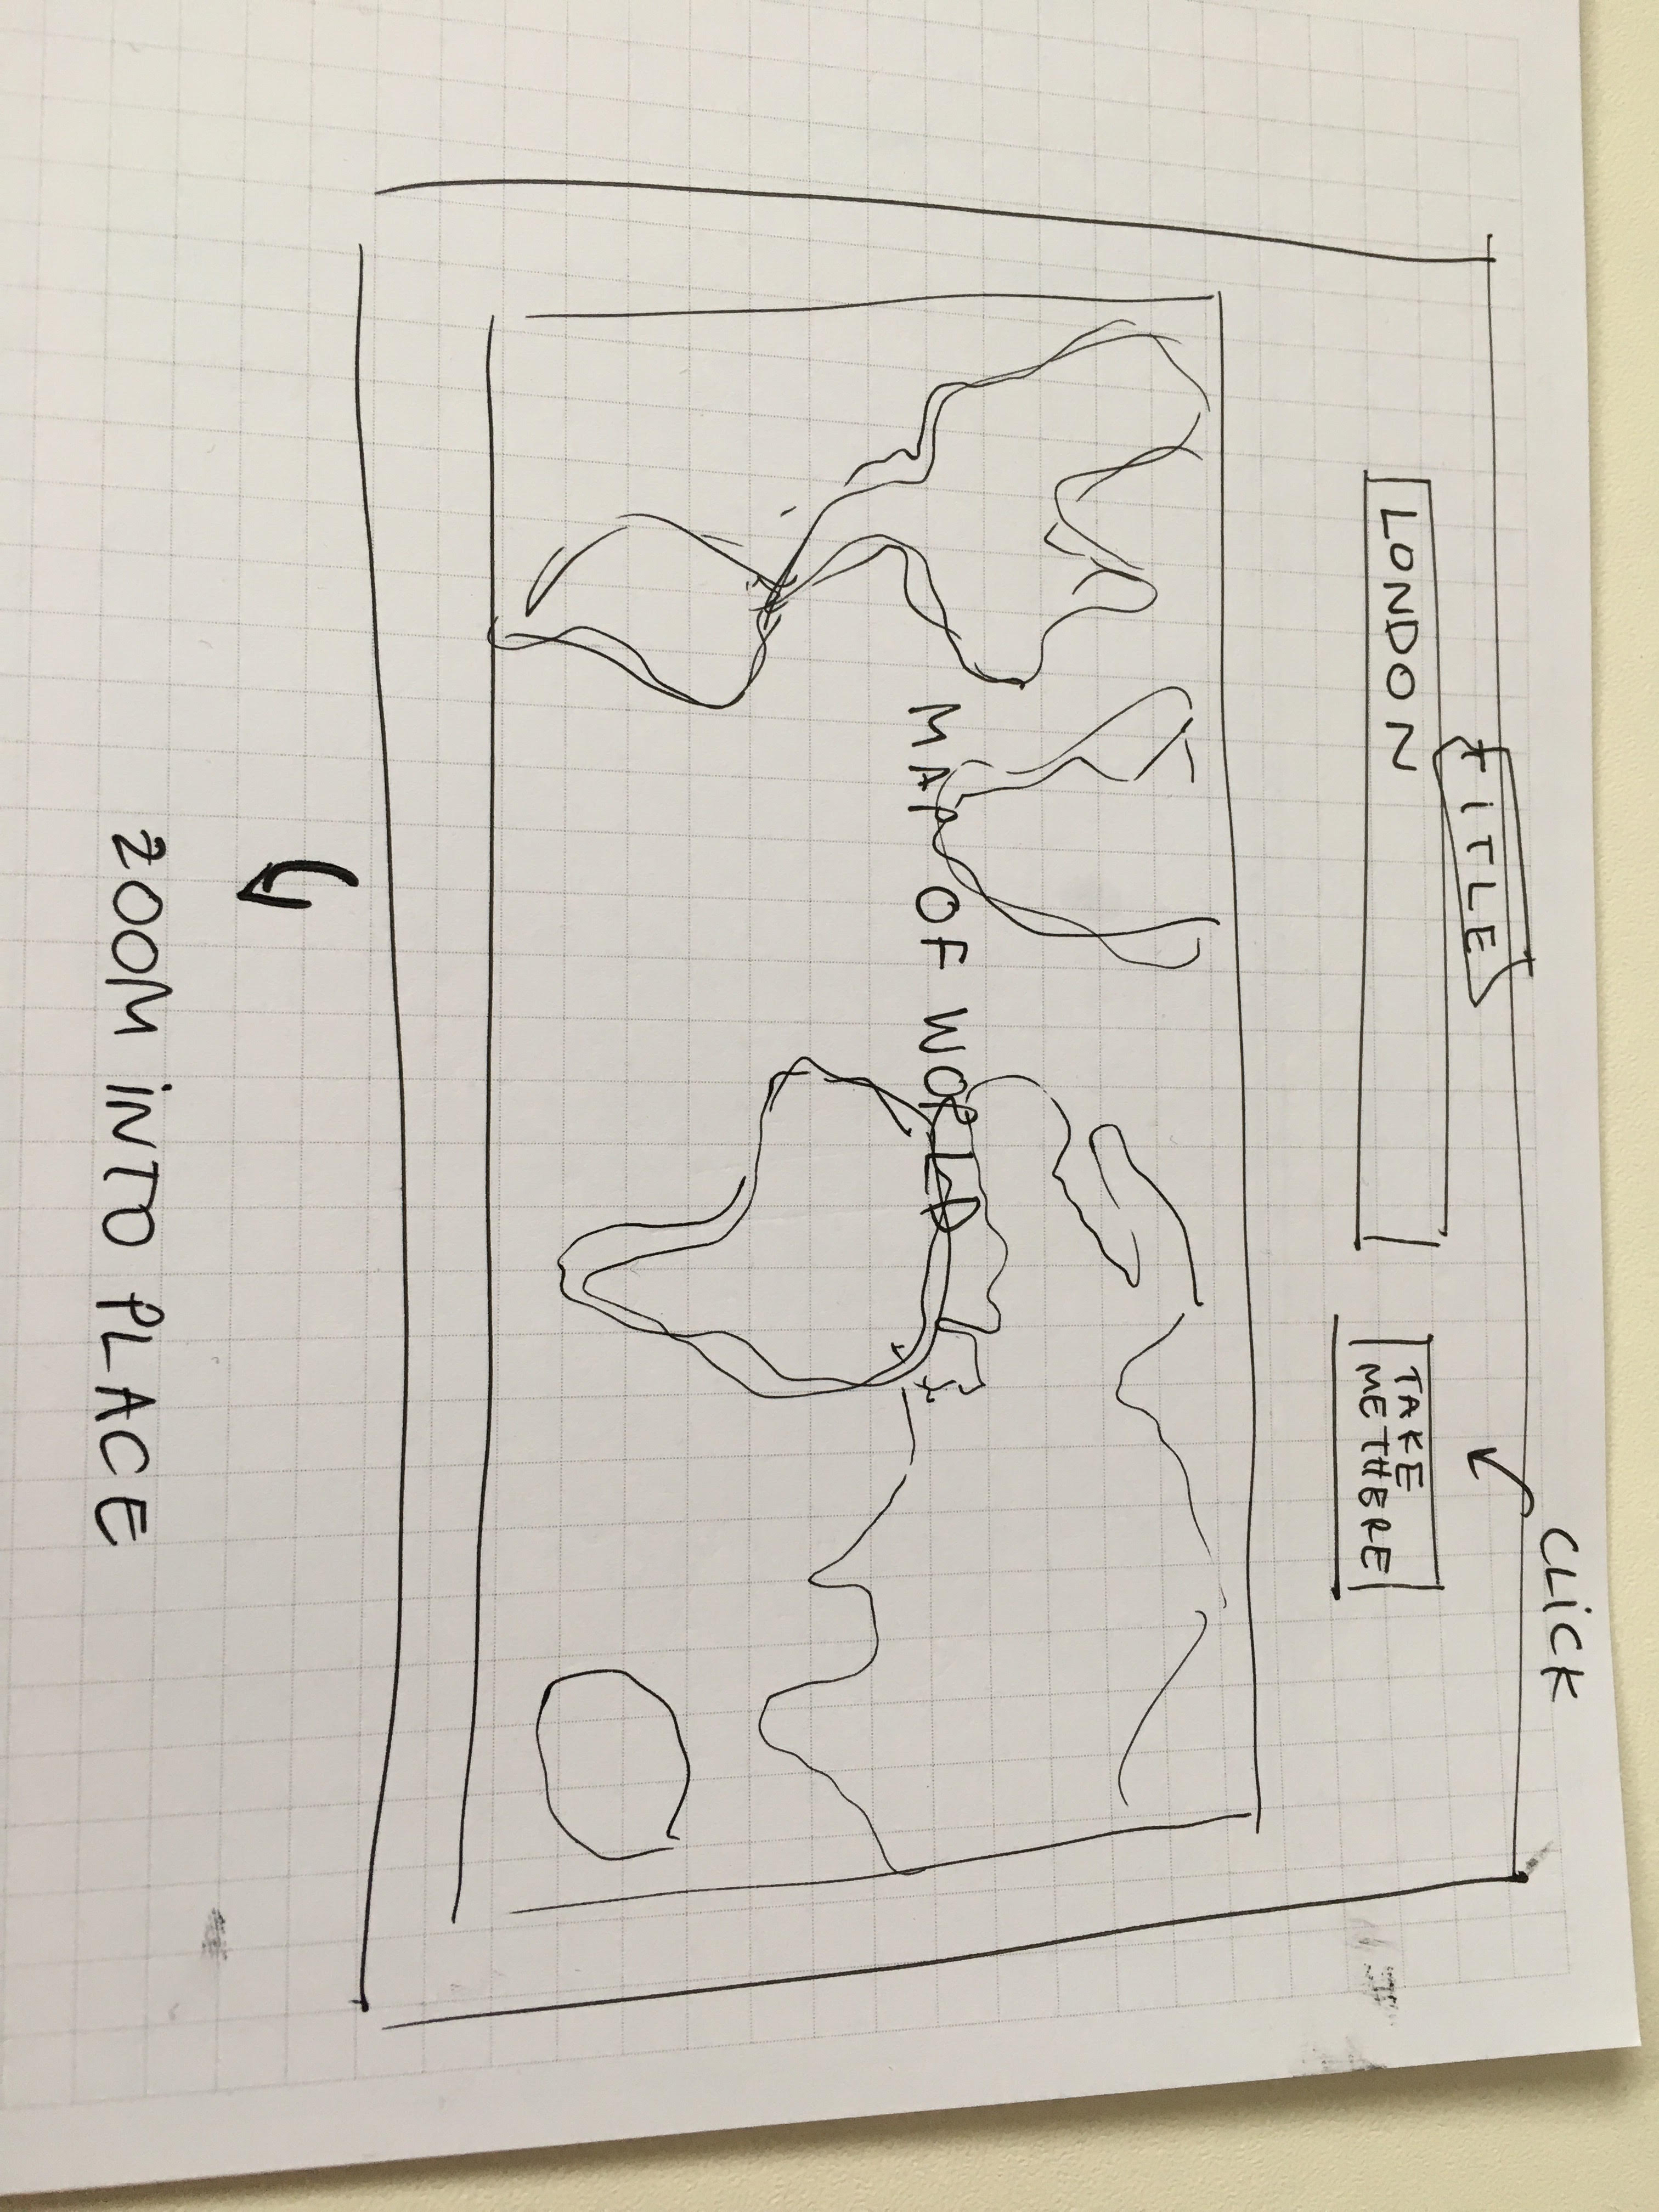 TITLE
CLICK
LONDON
TAKE
ME THERE
MAP OF WORLD
ZOOM INTO PLACE